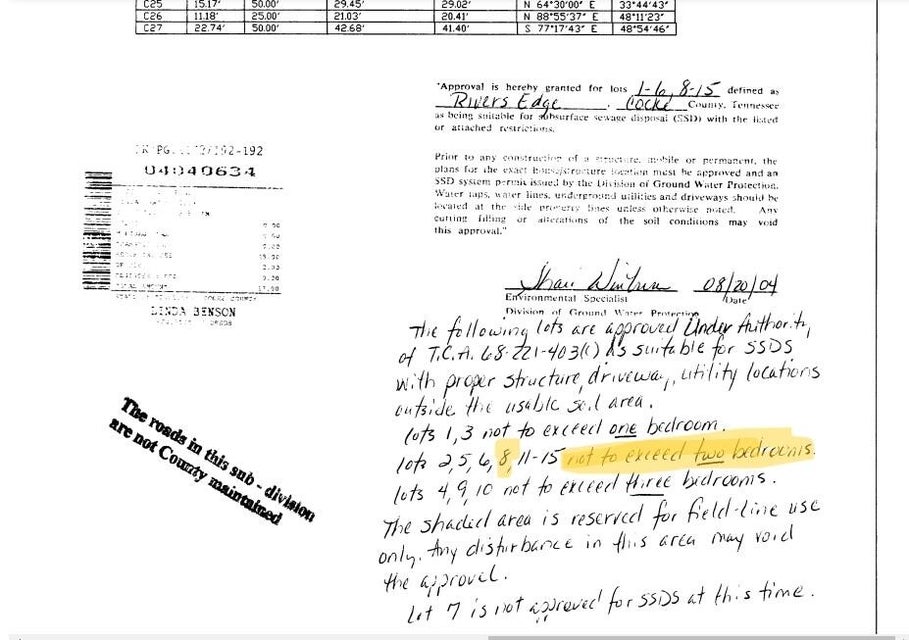 C25 15.17' 50.00' 29.45' 29.02' N 64°30'00" E 33°44'43"
C26 11.18' 25.00' 21.03' 20.41' N 88°55'37" E 48°11'23"
C27 22.74' 50.00' 42.68' 41.40' S 77°17'43" E 48°54'46"
"Approval is hereby granted for lots 1-6, 8-15 defined as
Rivers Edge, Cocke County, Tennessee
as being suitable for subsurface sewage disposal (SSD) with the listed
or attached restrictions.
Prior to any construction of a structure, mobile or permanent, the
plans for the exact house/structure location must be approved and an
SSD system permit issued by the Division of Ground Water Protection.
Water taps, water lines, underground utilities and driveways should be
located at the side property lines unless otherwise noted. Any
cutting filling or alterations of the soil conditions may void
this approval."
PG. 192-192
04040634
LINDA BENSON
08/20/04
Environmental Specialist Date
Division of Ground Water Protection
The following lots are approved Under Authority
of T.C.A. 68-221-403(c) as suitable for SSDS
with proper structure, driveway, utility locations
outside the usable soil area.
lots 1,3 not to exceed one bedroom.
lots 2,5,6,8,11-15 not to exceed two bedrooms.
lots 4,9,10 not to exceed three bedrooms.
The shaded area is reserved for field-line use
only. Any disturbance in this area may void
the approval.
Lot 7 is not approved for SSDS at this time.
The roads in this sub-division
are not County maintained